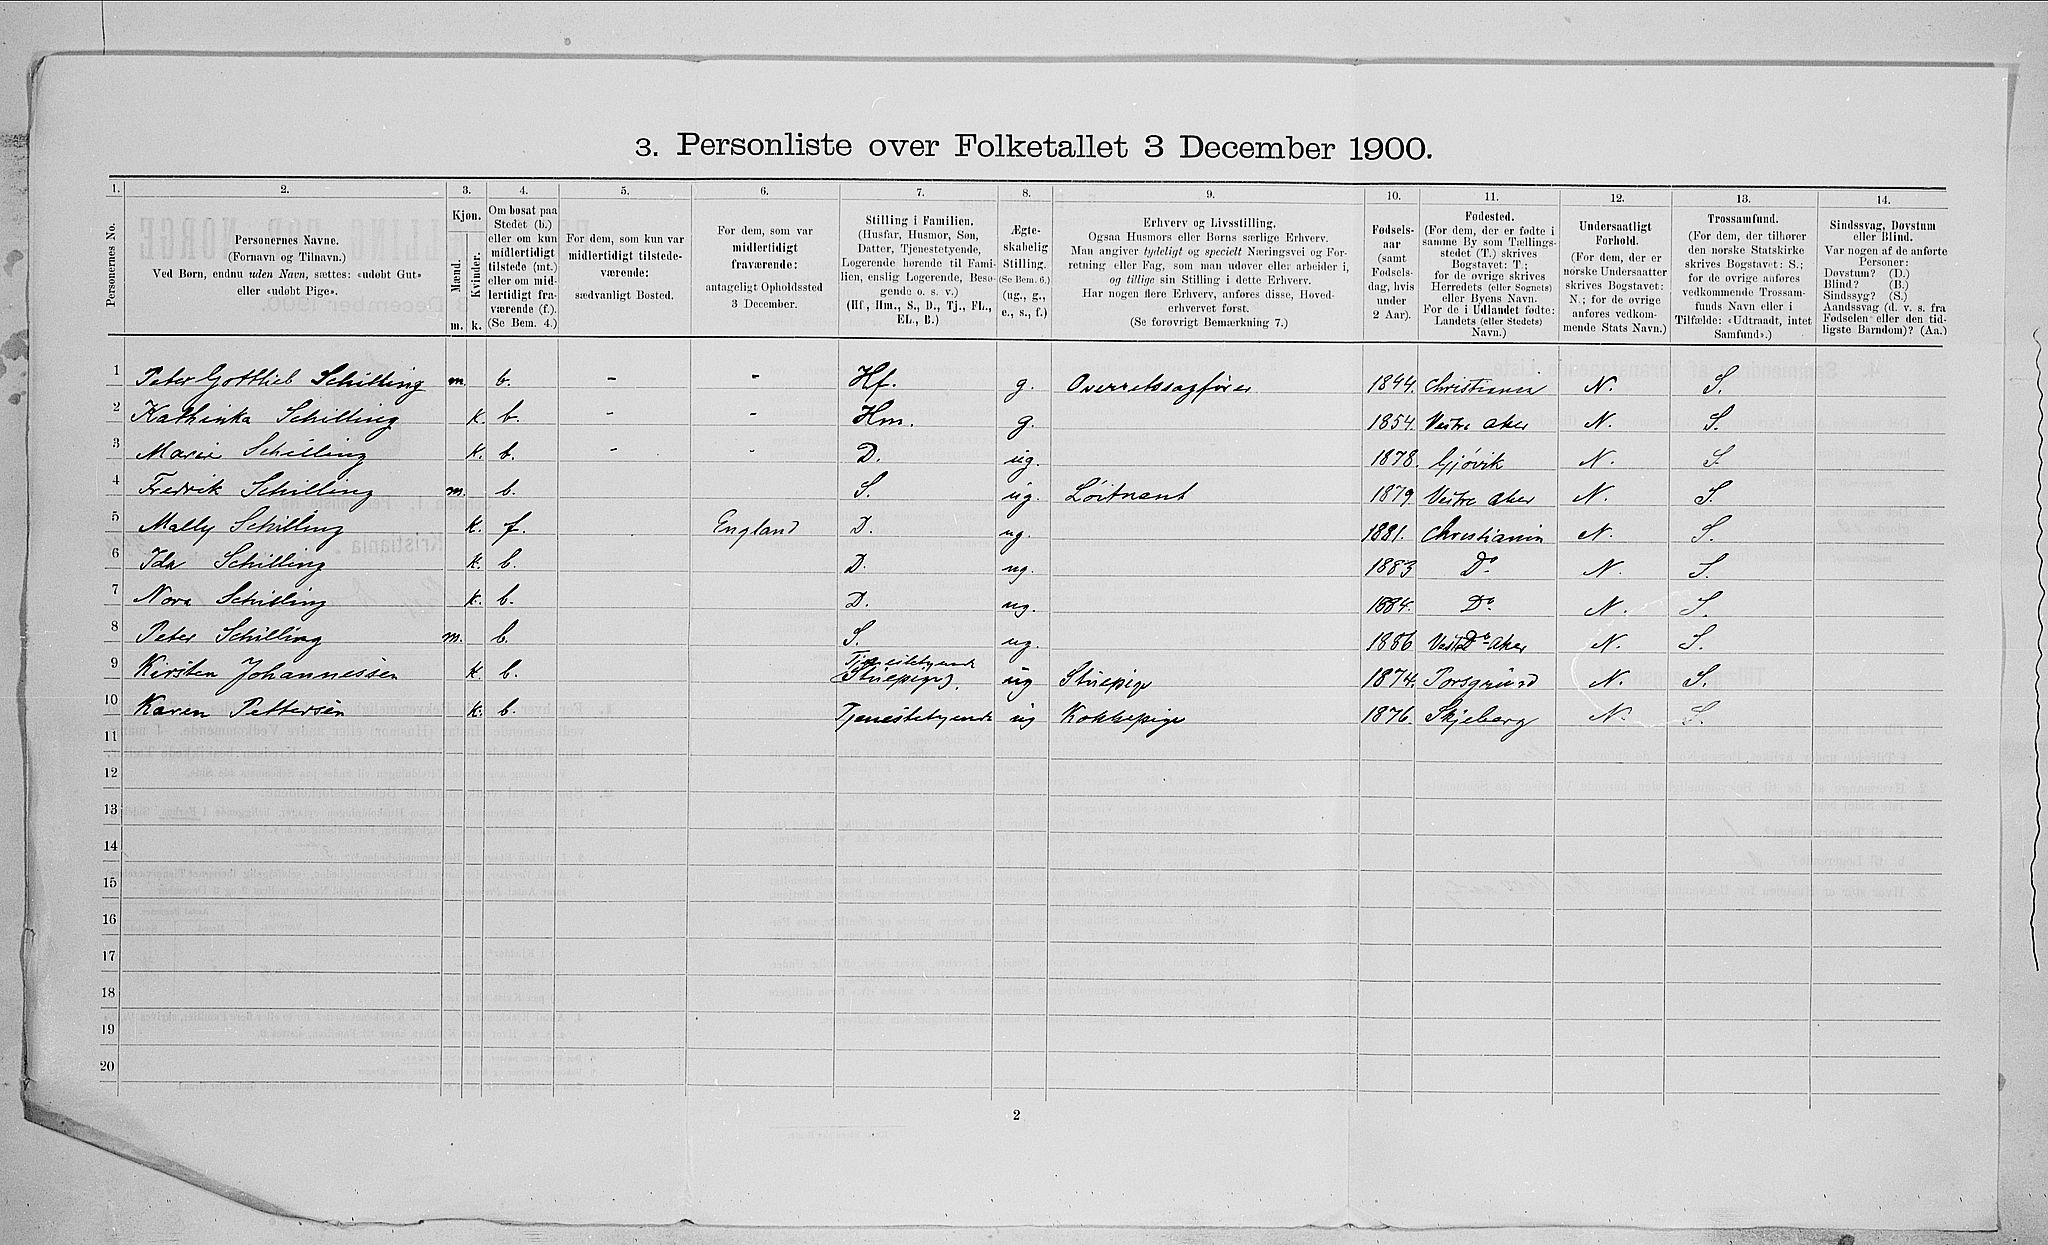 3. Personliste over Folketallet 3 December 1900.
1. 2. 3. 4. 5. 6. 7. 8. 9. 10. 11. 12. 13. 14.
Personernes No.
Personernes Navne.
(Fornavn og Tilnavn.)
Ved Børn, endnu uden Navn, sættes: «udøbt Gut»
eller «udøbt Pige».
Kjøn.
Mænd.
Kvinder.
m. k.
Om bosat paa
Stedet (b.)
eller om kun
midlertidigt
tilstede (mt.)
eller om mid-
lertidigt fra-
værende (f.).
(Se Bem. 4.)
For dem, som kun var
midlertidigt tilstede-
værende:
sædvanligt Bosted.
For dem, som var
midlertidigt
fraværende:
antageligt Opholdssted
3 December.
Stilling i Familien.
(Husfar, Husmor, Søn,
Datter, Tjenestetyende,
Logerende hørende til Fami-
lien, enslig Logerende, Besø-
gende o. s. v.)
(Hf., Hm., S., D., Tj., FL.,
EL., B.)
Ægte-
skabelig
Stilling.
(Se Bem. 6.)
(ug., g.,
e., s., f.)
Erhverv og Livsstilling.
Ogsaa Husmors eller Børns særlige Erhverv.
Man angiver tydeligt og specielt Næringsvei og For-
retning eller Fag, som man udøver eller arbeider i,
og tillige sin Stilling i dette Erhverv.
Har nogen flere Erhverv, anføres disse, Hoved-
erhvervet først.
(Se forøvrigt Bemærkning 7.)
Fødsels-
aar
(samt
Fødsels-
dag, hvis
under
2 Aar).
Fødested.
(For dem, der er fødte i
samme By som Tællings-
stedet (T.) skrives
Bogstavet: T.;
for de øvrige skrives
Herredets (eller Sognets)
eller Byens Navn.
For de i Udlandet fødte:
Landets (eller Stedets)
Navn.)
Undersaatligt
Forhold.
(For dem, der er
norske Undersaatter
skrives Bogstavet:
N.; for de øvrige
anføres vedkom-
mende Stats Navn.)
Trossamfund.
(For dem, der tilhører
den norske Statskirke
skrives Bogstavet: S.;
for de øvrige anføres
vedkommende Trossam-
funds Navn eller i
Tilfælde: «Udtraadt, intet
Samfund».)
Sindssvag, Døvstum
eller Blind.
Var nogen af de anførte
Personer:
Døvstum? (D.)
Blind? (B.)
Sindssyg? (S.)
Aandssvag (d. v. s. fra
Fødselen eller den tid-
ligste Barndom)? (Aa.)
1 Peter Gottlieb Schilling m. b. - - Hf. g. Overretssagfører 1844. Christiania N. S.
2 Kathinka Schilling k. b. - - Hm. g. 1854. Vestre Aker N. S.
3 Marie Schilling k. b. - - D. ug. 1878. Gjøvik N. S.
4 Fredrik Schilling m. b. S. ug. Løitnant 1879. Vestre Aker N. S.
5 Mally Schilling k. f. England D. ug. 1881. Christiania N. S.
6 Ida Schilling k. b. D. ug. 1883 Do. N. S.
7 Nora Schilling k. b. D. ug. 1884. Do. N. S.
8 Peter Schilling m. b. S. ug. 1886 Vestre Aker N. S.
9 Kirsten Johannessen k. b. Tjenestetyende (Stuepige). ug Stuepige 1874. Porsgrund N. S.
10 Karen Pettersen k. b. Tjenestetyende ug Kokkepige 1876. Skjeberg N. S.
11
12
13
14
15
16
17
18
19
20
2